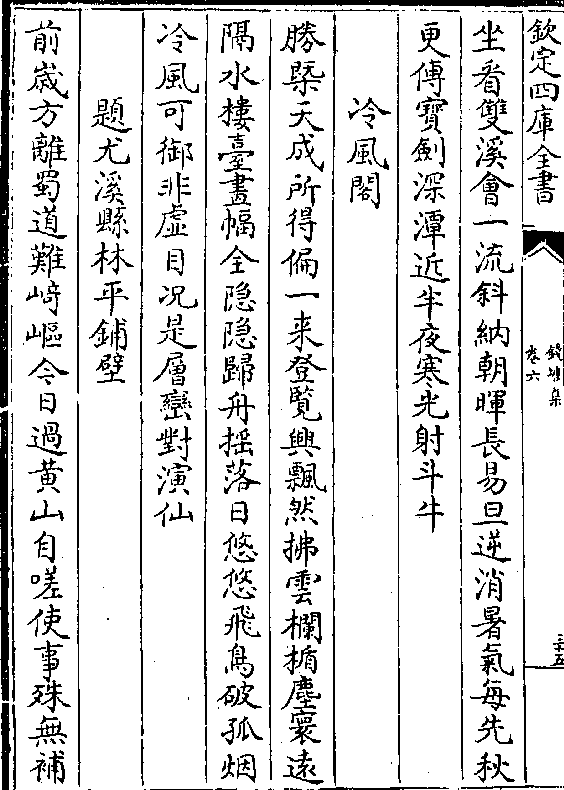 欽定四庫全書
鐔津集
卷六
三十五
坐看雙溪會一流斜納朝暉長易旦逆消暑氣每先秋
更傳寶劍深潭近半夜寒光射斗牛
冷風閣
勝槩天成所得偏一来登覽興飄然拂雲欄楯塵寰逺
隔水樓臺畫幅全隐隐歸舟揺落日悠悠飛鳥破孤烟
冷風可御非虚目况是層巒對演仙
題尤溪縣林平鋪壁
前嵗方離蜀道難﨑嶇今日過黄山自嗟使事殊無補